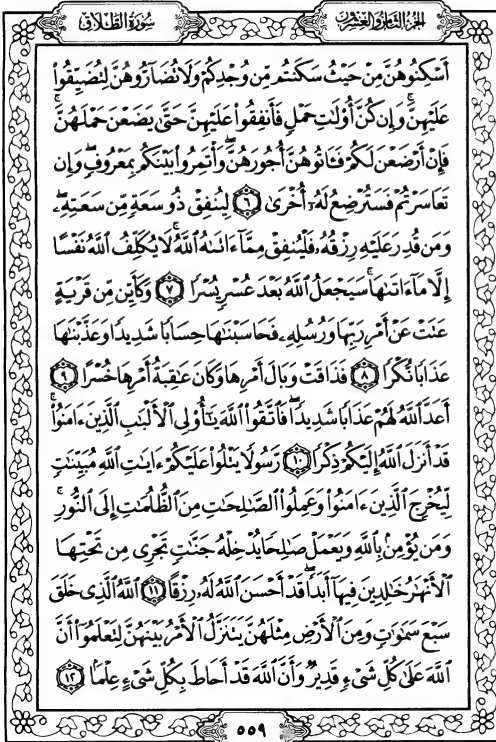 سُورَةُ الطَّلَاقِ
الجُزْءُ الثَّامِنُ وَالعِشْرُونَ
أَسْكِنُوهُنَّ مِنْ حَيْثُ سَكَنتُم مِّن وُجْدِكُمْ وَلَا تُضَآرُّوهُنَّ لِتُضَيِّقُوا۟
عَلَيْهِنَّ ۚ وَإِن كُنَّ أُو۟لَٰتِ حَمْلٍ فَأَنفِقُوا۟ عَلَيْهِنَّ حَتَّىٰ يَضَعْنَ حَمْلَهُنَّ ۚ
فَإِنْ أَرْضَعْنَ لَكُمْ فَـَٔاتُوهُنَّ أُجُورَهُنَّ ۖ وَأْتَمِرُوا۟ بَيْنَكُم بِمَعْرُوفٍ ۖ وَإِن
تَعَاسَرْتُمْ فَسَتُرْضِعُ لَهُۥٓ أُخْرَىٰ ٦ لِيُنفِقْ ذُو سَعَةٍ مِّن سَعَتِهِۦ ۖ
وَمَن قُدِرَ عَلَيْهِ رِزْقُهُۥ فَلْيُنفِقْ مِمَّآ ءَاتَىٰهُ ٱللَّهُ ۚ لَا يُكَلِّفُ ٱللَّهُ نَفْسًا
إِلَّا مَآ ءَاتَىٰهَا ۚ سَيَجْعَلُ ٱللَّهُ بَعْدَ عُسْرٍ يُسْرًا ٧ وَكَأَيِّن مِّن قَرْيَةٍ
عَتَتْ عَنْ أَمْرِ رَبِّهَا وَرُسُلِهِۦ فَحَاسَبْنَٰهَا حِسَابًا شَدِيدًا وَعَذَّبْنَٰهَا
عَذَابًا نُّكْرًا ٨ فَذَاقَتْ وَبَالَ أَمْرِهَا وَكَانَ عَٰقِبَةُ أَمْرِهَا خُسْرًا ٩
أَعَدَّ ٱللَّهُ لَهُمْ عَذَابًا شَدِيدًا ۖ فَٱتَّقُوا۟ ٱللَّهَ يَٰٓأُو۟لِى ٱلْأَلْبَٰبِ ٱلَّذِينَ ءَامَنُوا۟ ۚ
قَدْ أَنزَلَ ٱللَّهُ إِلَيْكُمْ ذِكْرًا ١٠ رَّسُولًا يَتْلُوا۟ عَلَيْكُمْ ءَايَٰتِ ٱللَّهِ مُبَيِّنَٰتٍ
لِّيُخْرِجَ ٱلَّذِينَ ءَامَنُوا۟ وَعَمِلُوا۟ ٱلصَّٰلِحَٰتِ مِنَ ٱلظُّلُمَٰتِ إِلَى ٱلنُّورِ ۚ
وَمَن يُؤْمِنۢ بِٱللَّهِ وَيَعْمَلْ صَٰلِحًا يُدْخِلْهُ جَنَّٰتٍ تَجْرِى مِن تَحْتِهَا
ٱلْأَنْهَٰرُ خَٰلِدِينَ فِيهَآ أَبَدًا ۖ قَدْ أَحْسَنَ ٱللَّهُ لَهُۥ رِزْقًا ١١ ٱللَّهُ ٱلَّذِى خَلَقَ
سَبْعَ سَمَٰوَٰتٍ وَمِنَ ٱلْأَرْضِ مِثْلَهُنَّ يَتَنَزَّلُ ٱلْأَمْرُ بَيْنَهُنَّ لِتَعْلَمُوٓا۟ أَنَّ
ٱللَّهَ عَلَىٰ كُلِّ شَىْءٍ قَدِيرٌ وَأَنَّ ٱللَّهَ قَدْ أَحَاطَ بِكُلِّ شَىْءٍ عِلْمًۢا ١٢
٥٥٩